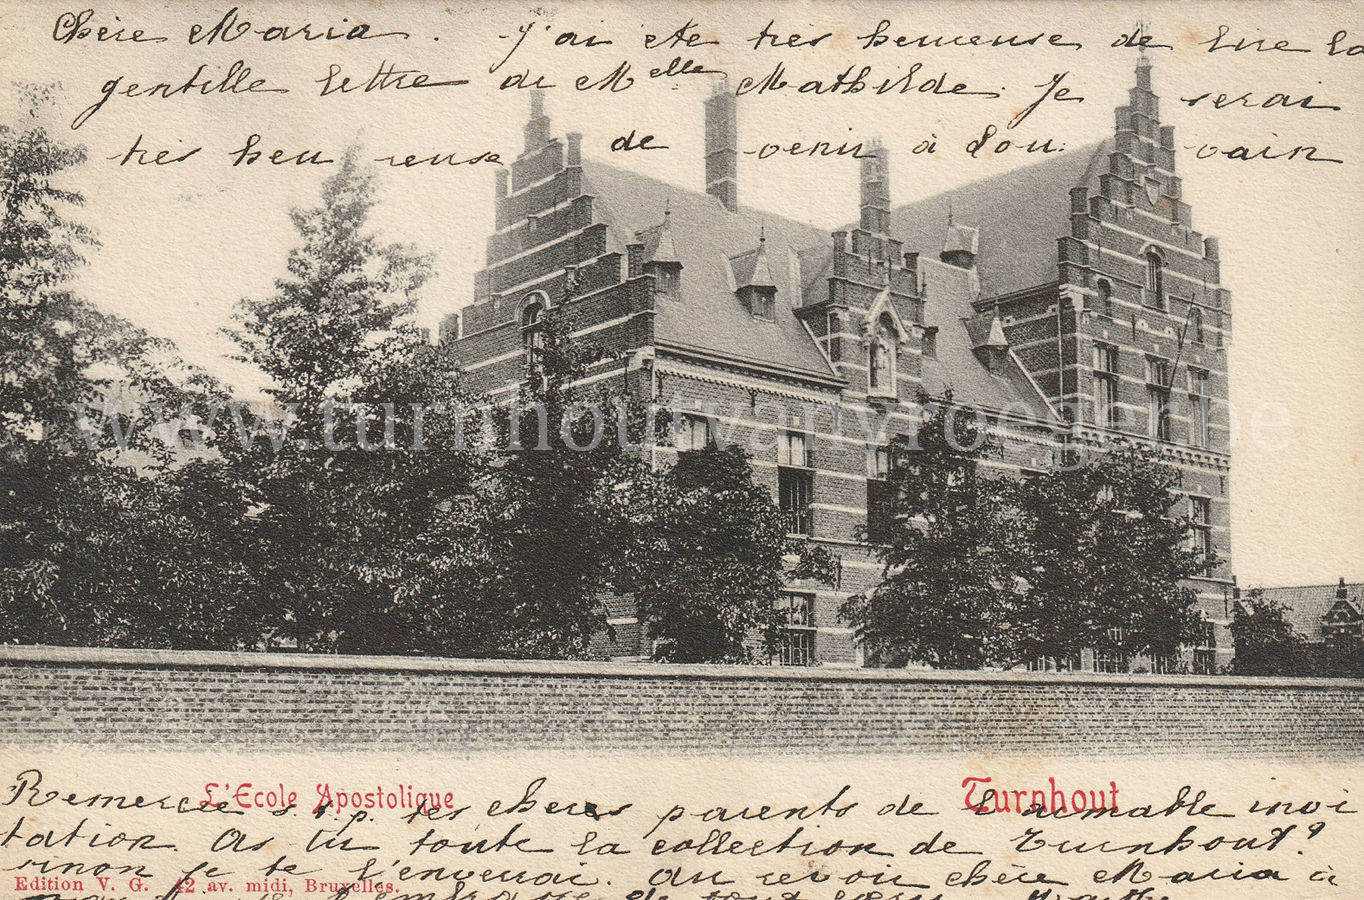 Chère Maria. J'ai été très heureuse de lire la
gentille lettre de Melle Mathilde. Je serai
très heu reuse de venir à Lou vain
www.turnhoutvanvroeger.be
L'Ecole Apostolique Turnhout
Remercie s.t.p. tes chers parents de l'aimable invi
tation. As tu toute la collection de Turnhout?
sinon je te l'enverrai. Au revoir chère Maria à
Edition V. G. 42 av. midi, Bruxelles.
je t'embrasse de tout cœur